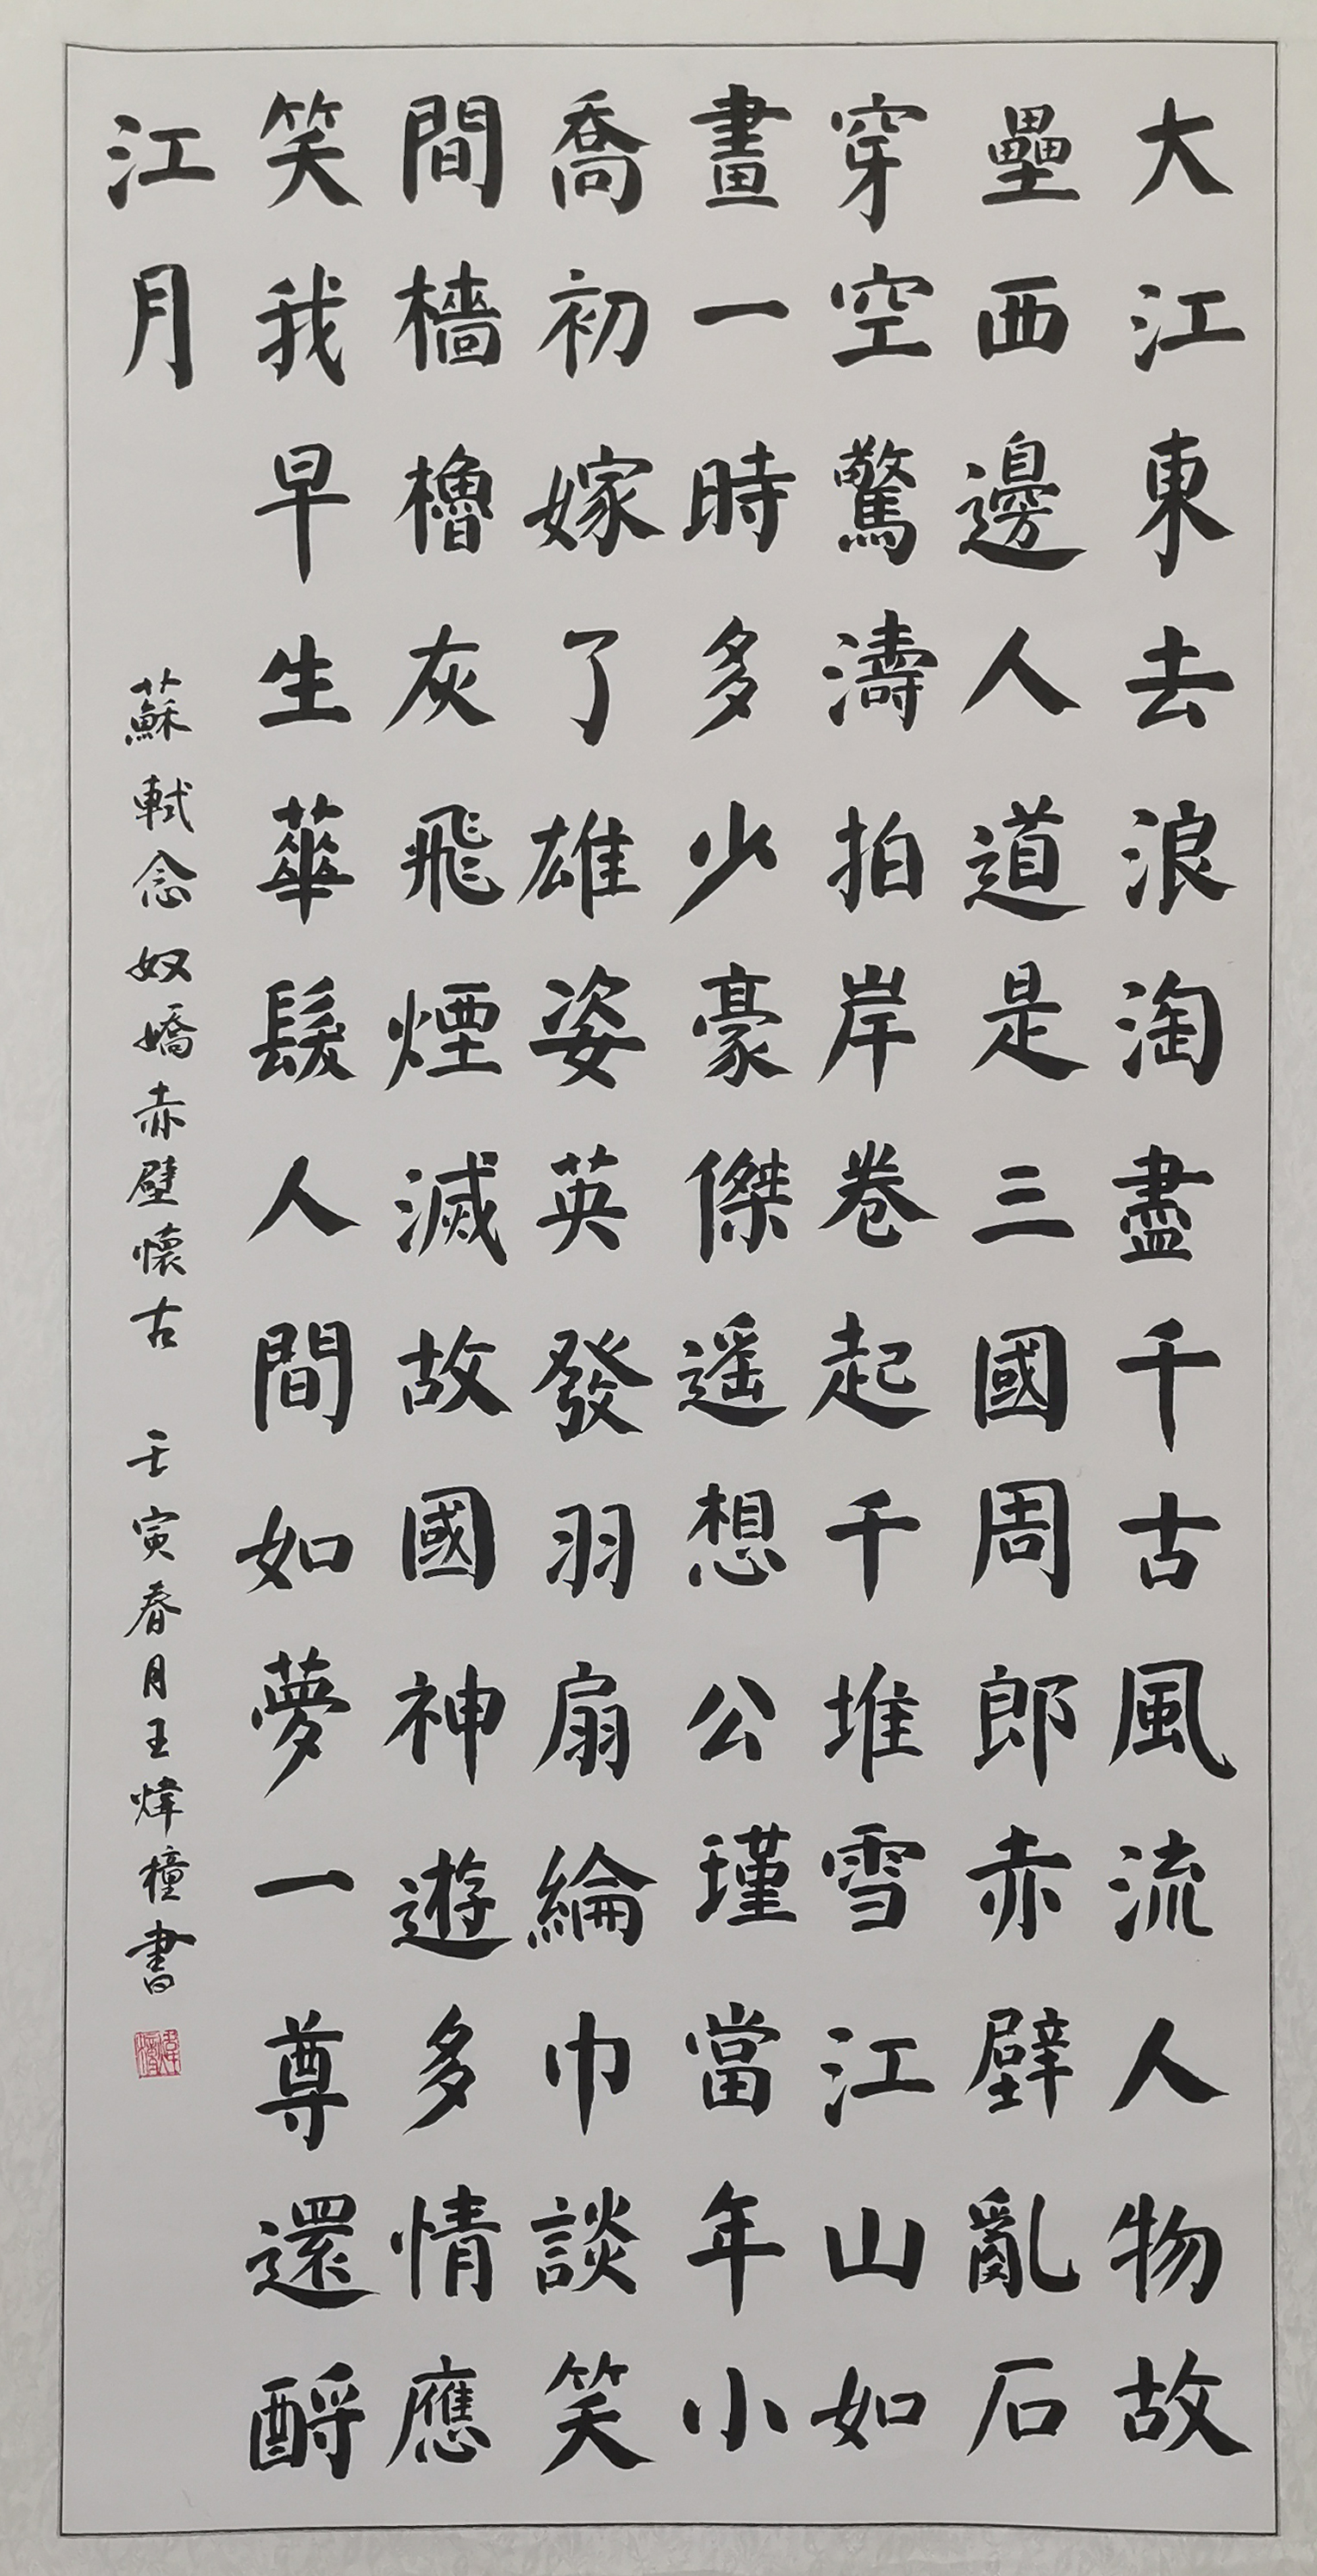 大江東去浪淘盡千古風流人物故
壘西邊人道是三國周郎赤壁亂石
穿空驚濤拍岸卷起千堆雪江山如
畫一時多少豪傑遥想公瑾當年小
喬初嫁了雄姿英發羽扇綸巾談笑
間檣櫓灰飛煙滅故國神遊多情應
笑我早生華髮人間如夢一尊還酹
江月
蘇軾念奴嬌赤壁懷古 壬寅春月王煒橦書